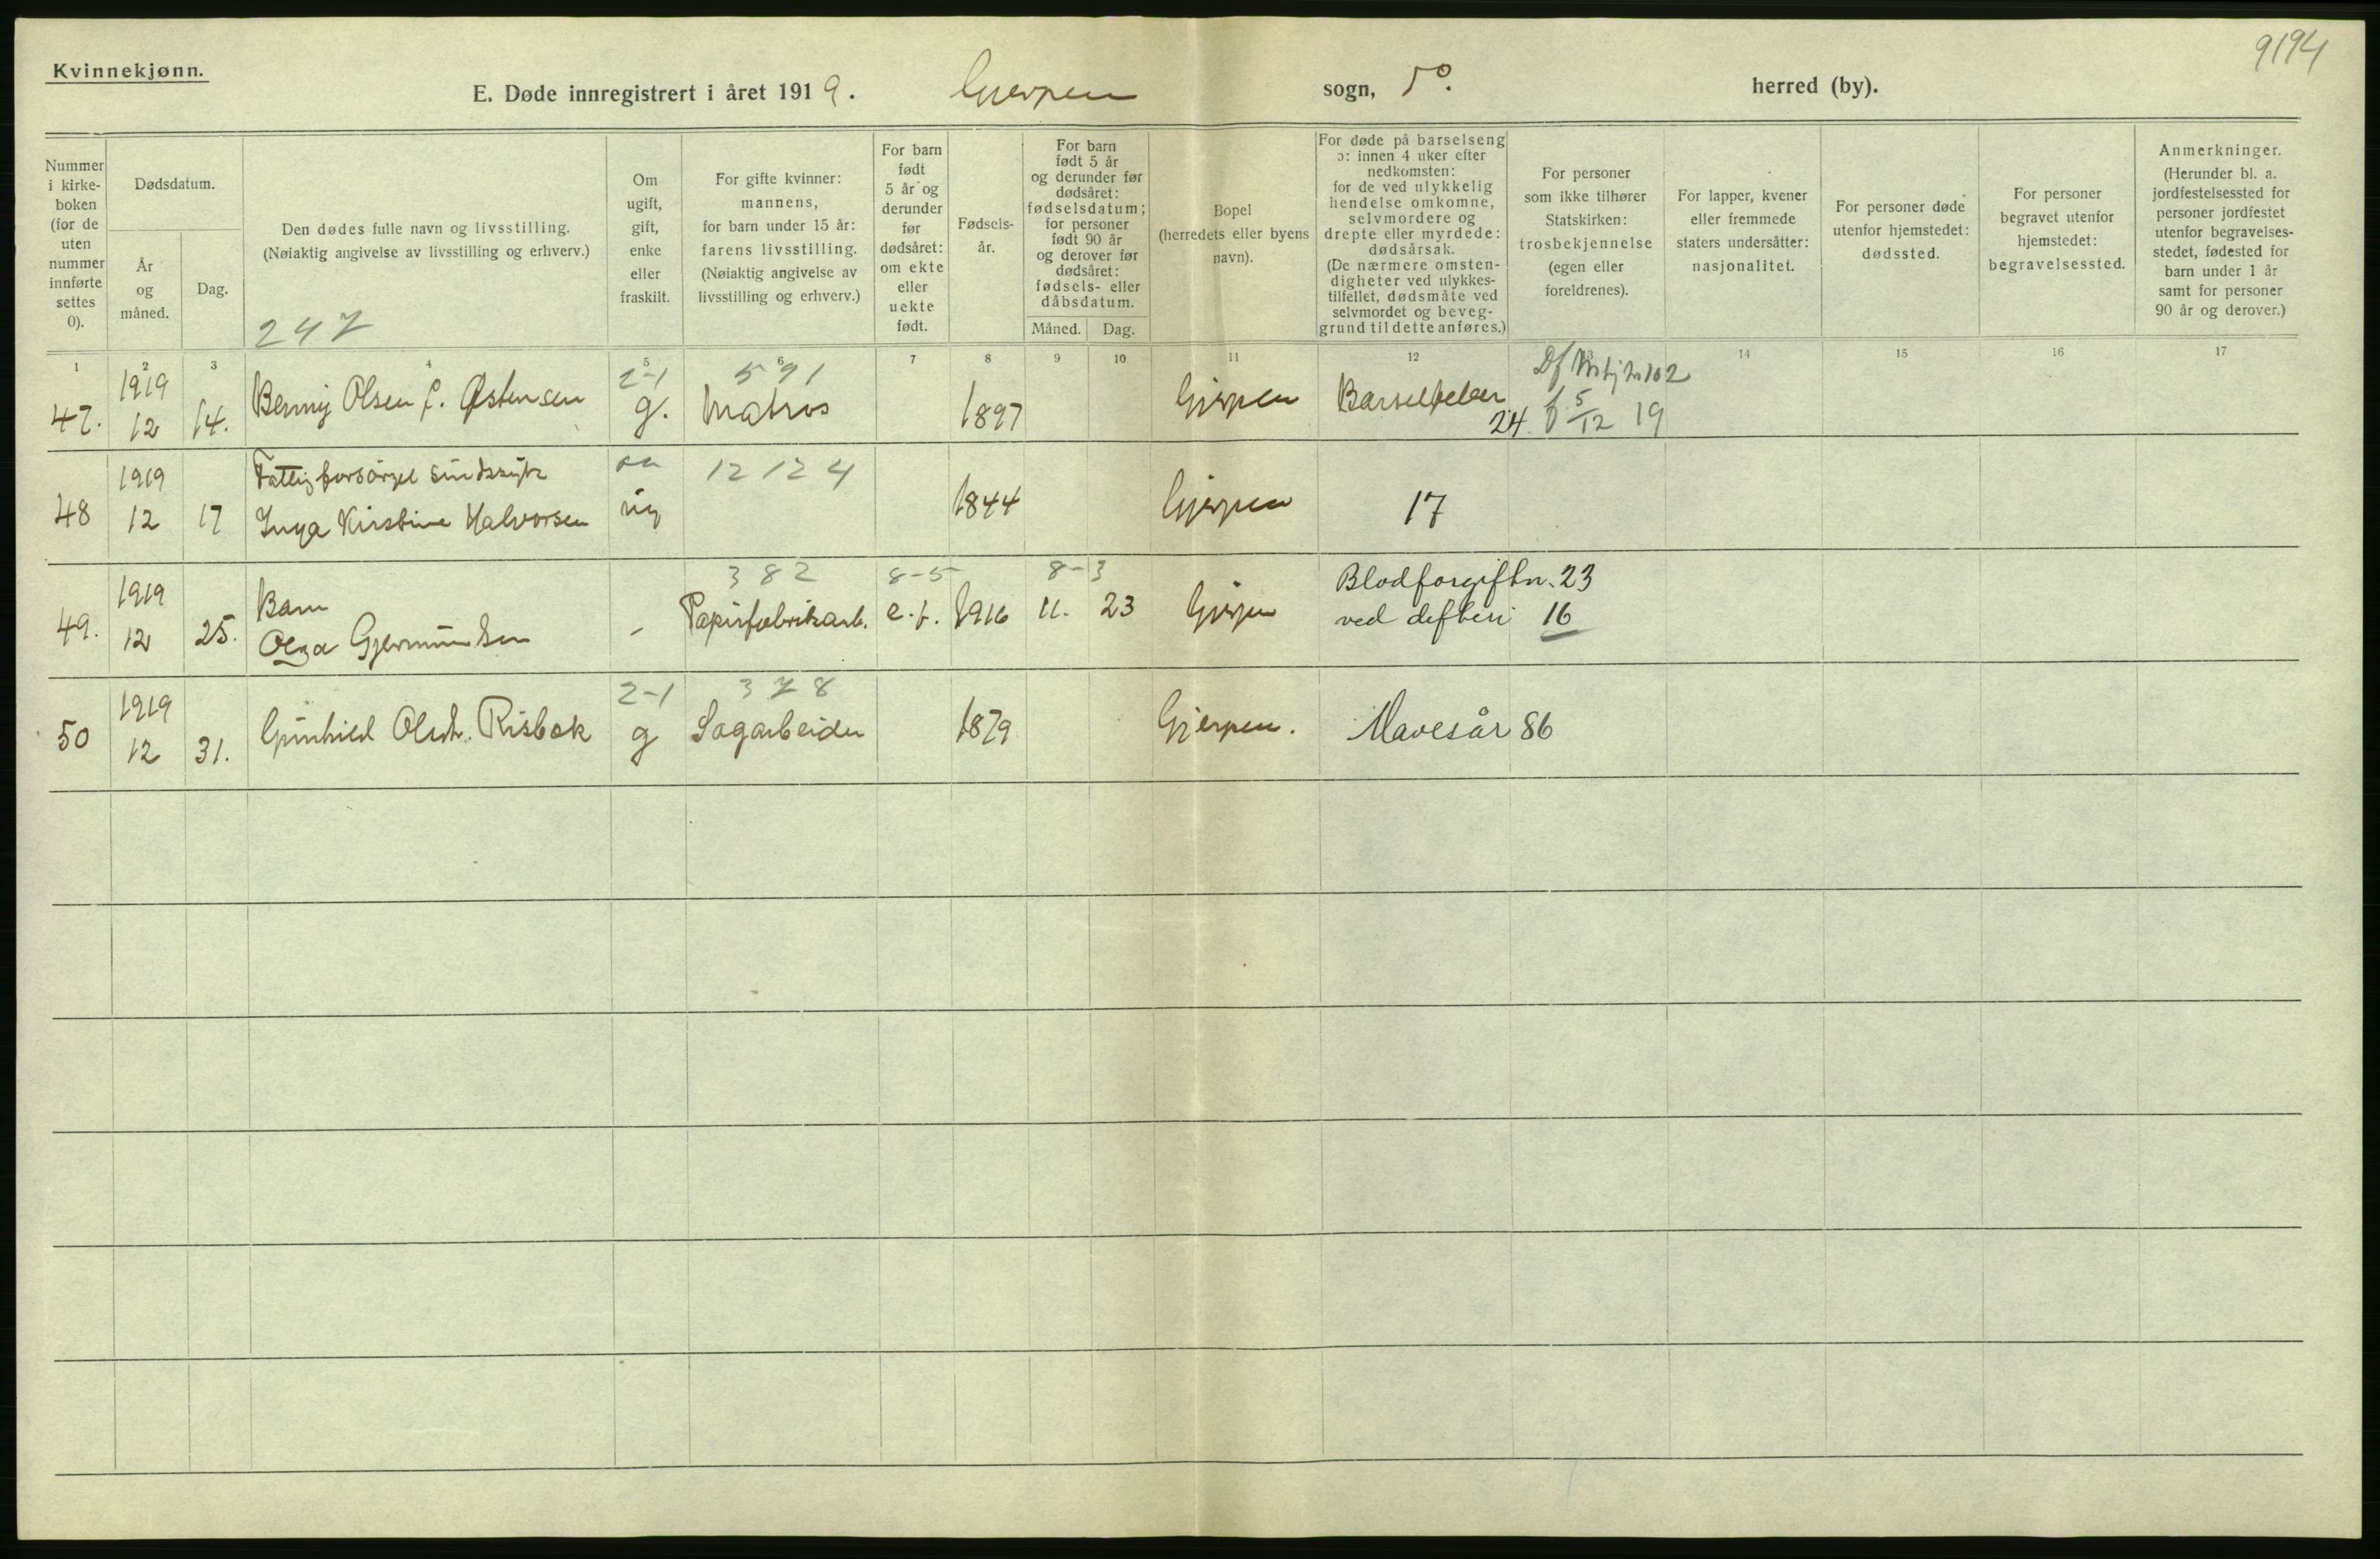 9194
Kvinnekjønn.
E. Døde innregistrert i året 1919. Gjerpen sogn, herred (by).
Nummer i kirke-boken (for de uten nummer innførte settes 0).
Dødsdatum.
År og måned.
Dag.
Den dødes fulle navn og livsstilling.
(Nøiaktig angivelse av livsstilling og erhverv.)
247
Om ugift, gift, enke eller fraskilt.
For gifte kvinner: mannens, for barn under 15 år: farens livsstilling. (Nøiaktig angivelse av livsstilling og erhverv.)
For barn født 5 år og derunder før dødsåret: om ekte eller uekte født.
Fødsels-år.
For barn født 5 år og derunder før dødsåret: fødselsdatum; for personer født 90 år og derover før dødsåret: fødsels- eller dåbsdatum.
Måned. Dag.
Bopel (herredets eller byens navn).
For døde på barselseng ɔ: innen 4 uker efter nedkomsten: for de ved ulykkelig hendelse omkomne, selvmordere og drepte eller myrdede: dødsårsak. (De nærmere omsten-digheter ved ulykkes-tilfellet, dødsmåte ved selvmordet og beveg-grund til dette anføres.)
For personer som ikke tilhører Statskirken: trosbekjennelse (egen eller foreldrenes).
For lapper, kvener eller fremmede staters undersåtter: nasjonalitet.
For personer døde utenfor hjemstedet: dødssted.
For personer begravet utenfor hjemstedet: begravelsessted.
Anmerkninger. (Herunder bl. a. jordfestelsessted for personer jordfestet utenfor begravelses-stedet, fødested for barn under 1 år samt for personer 90 år og derover.)
1 2 3 4 5 6 7 8 9 10 11 12 13 14 15 16 17
2-1 591
47. 1919 12 14. Benny Olsen f. Østensen g. Matros 1897 Gjerpen Barselfeber 24 5/12 19
12 12 4
48 1919 12 17 Fattigforsørget sindssyk Inga Kirstine Halvorsen ug 1844 Gjerpen 17
382 8-5 8-3
49. 1919 12 25. Barn Olga Gjermundsen - Papirfabrikarb. e. f. 1916 11. 23 Gjerpen Blodforgiftn. 23 ved difteri 16
2-1 378
50 1919 12 31. Gunhild Olsdt. Risbak g Sagarbeider 1879 Gjerpen. Mavesår 86